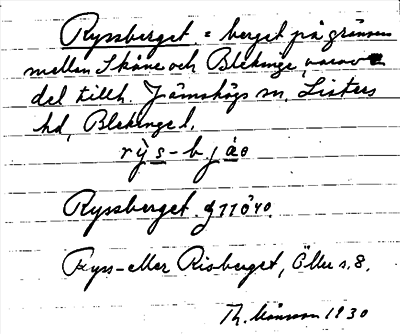 Ryssberget = berget på gränsen
mellan Skåne och Blekinge, varav en
del tillh. Jämshögs sn, Listers
hd, Blekinge l.
Ryssberget. g 11ö40.
Ryss- eller Risberget, Öller s. 8.
Th. Månsson 1930